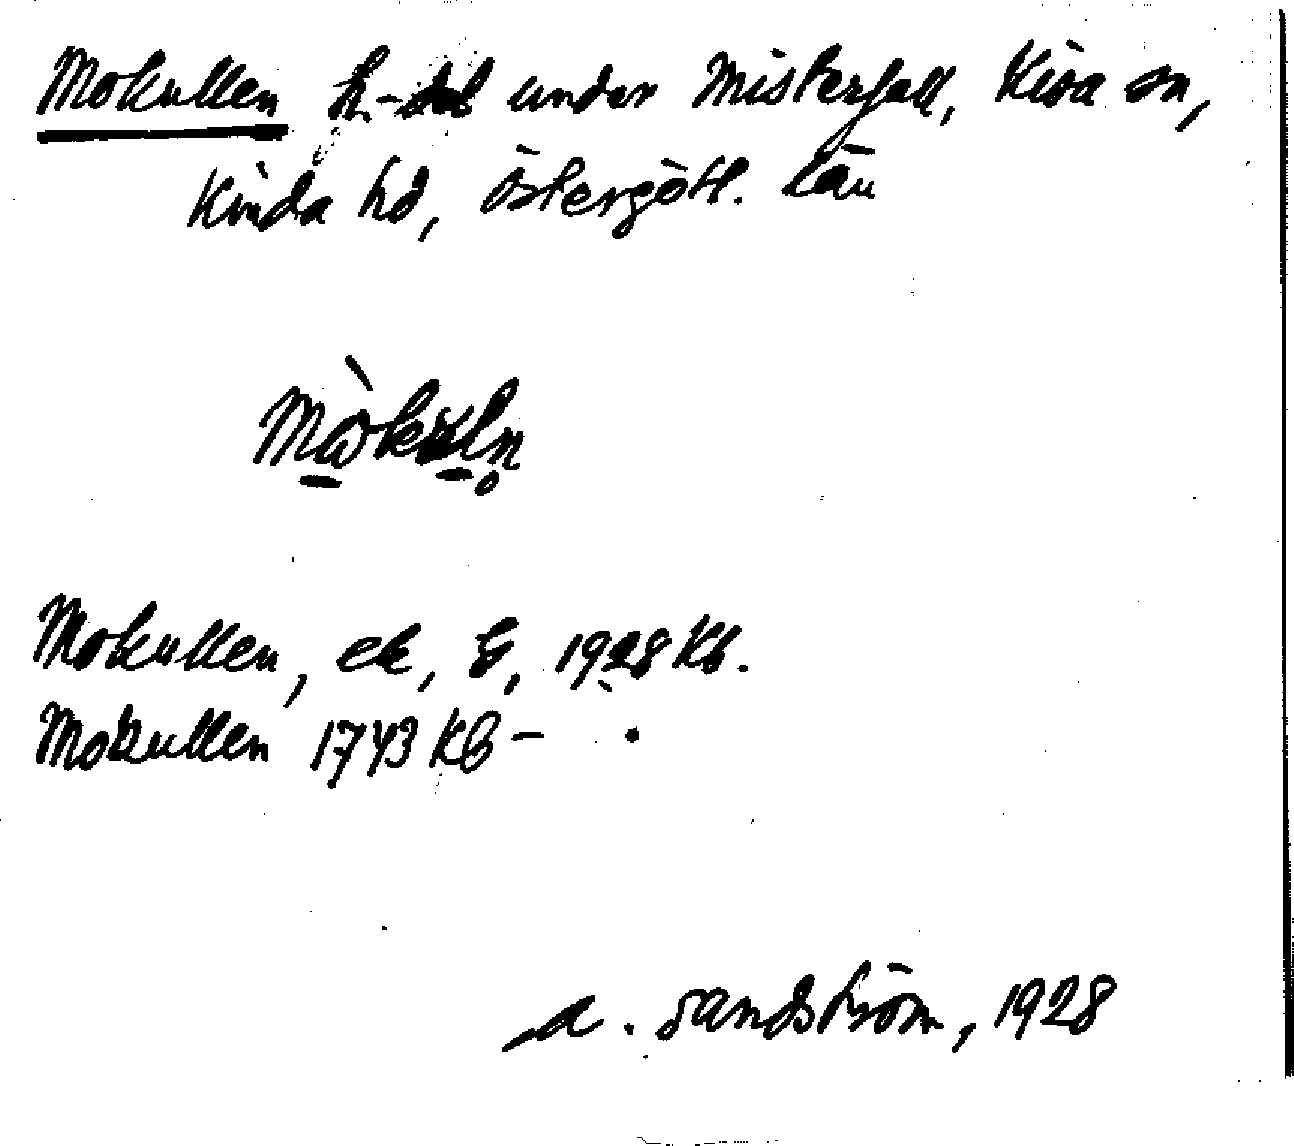 Mokullen h.-del under Misterfall, Kisa sn,
Kinda hd, Östergötl. län
Mokullen, ek, G, 1928 Kb.
Mokullen 1743 KB –
A. Sandström, 1928